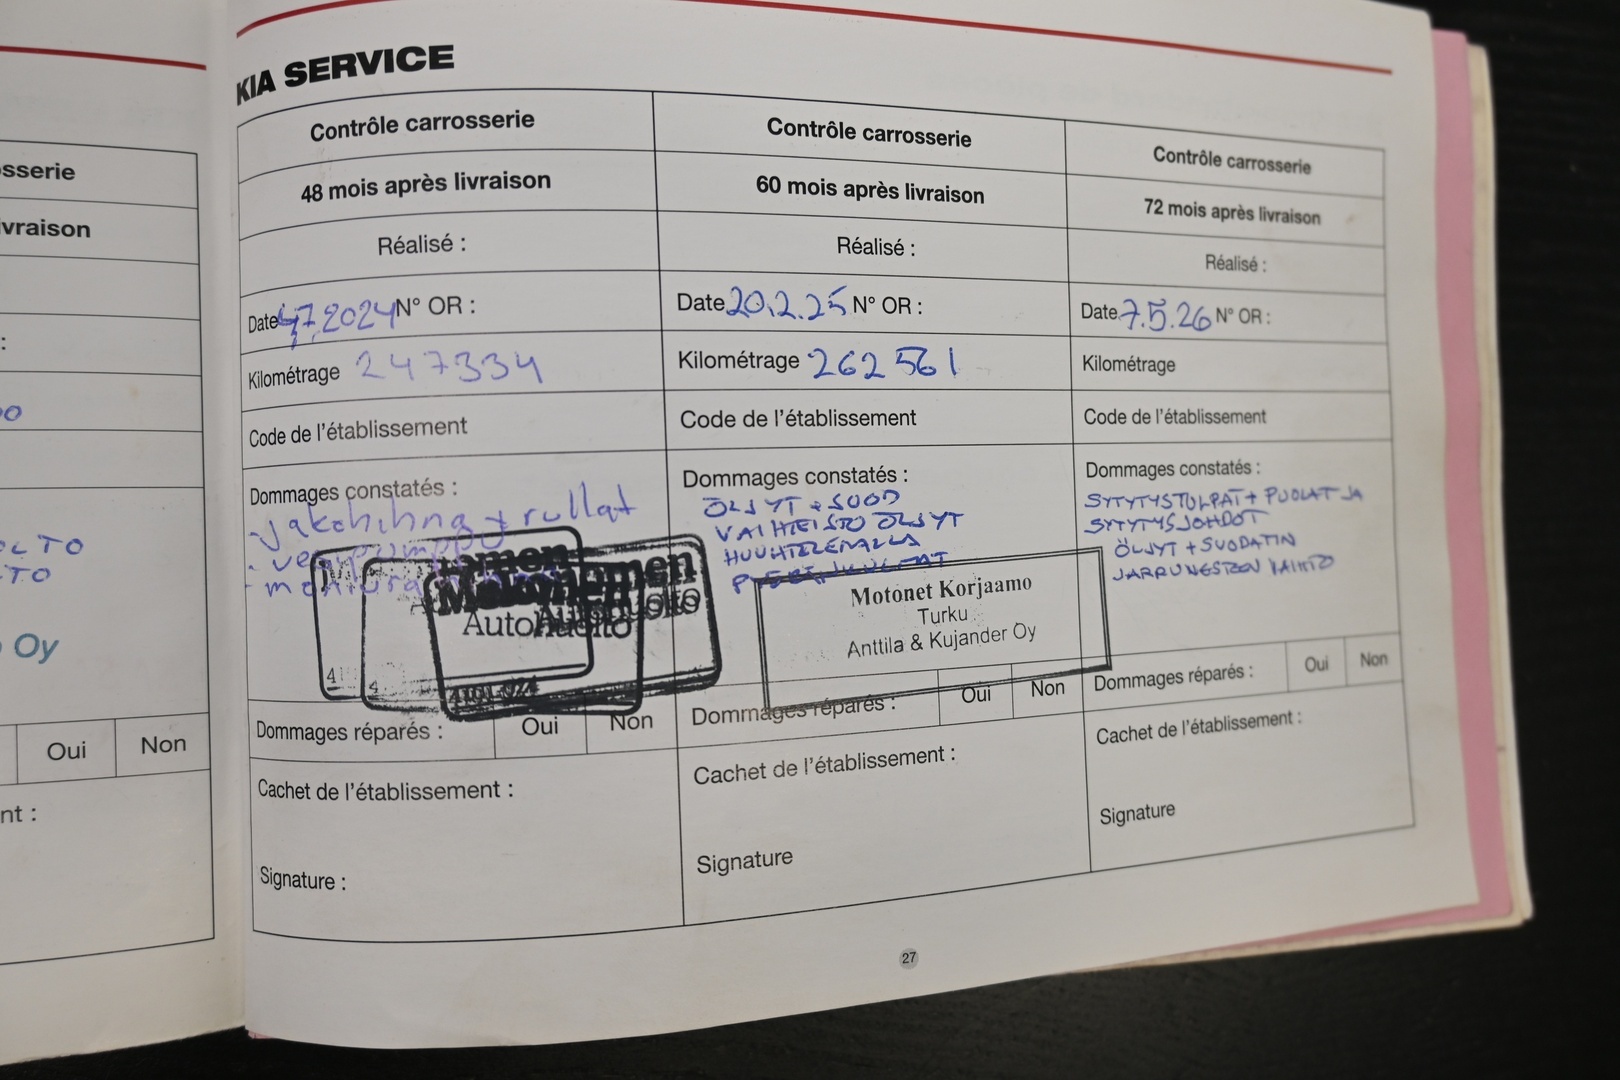 sserie
vraison
:
00
OLTO
TO
Oy
Oui Non
nt :
KIA SERVICE
Contrôle carrosserie
48 mois après livraison
Réalisé :
Date 4.7.2024 N° OR :
Kilométrage 247334
Code de l'établissement
Dommages constatés :
- jakohihna + rullat
- vesipumppu
Autohuolto
Dommages réparés : Oui Non
Cachet de l'établissement :
Signature :
Contrôle carrosserie
60 mois après livraison
Réalisé :
Date 20.2.25 N° OR :
Kilométrage 262561
Code de l'établissement
Dommages constatés :
ÖLJYT + SUOD
VAIHTEISTO ÖLJYT
HUUHTELEMALLA
Motonet Korjaamo
Turku
Anttila & Kujander Oy
Dommages réparés : Oui Non
Cachet de l'établissement :
Signature
Contrôle carrosserie
72 mois après livraison
Réalisé :
Date 7.5.26 N° OR :
Kilométrage
Code de l'établissement
Dommages constatés :
SYTYTYSTULPAT + PUOLAT JA
SYTYTYSJOHDOT
ÖLJYT + SUODATIN
JARRUNESTEEN VAIHTO
Dommages réparés : Oui Non
Cachet de l'établissement :
Signature
27